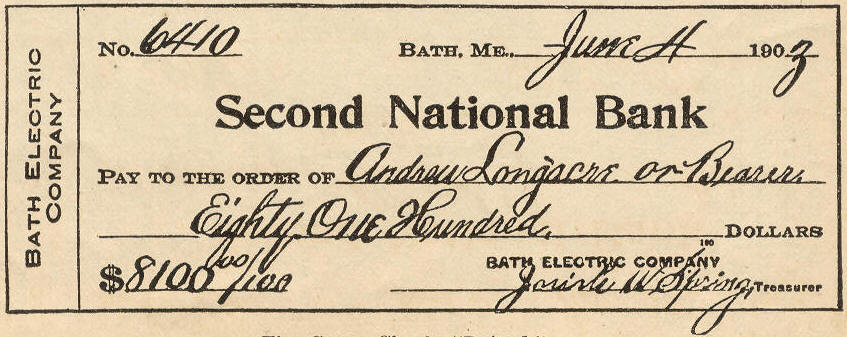 BATH ELECTRIC
COMPANY
No. 6410 BATH, ME., June 4 1903
Second National Bank
PAY TO THE ORDER OF Andrew Longacre or Bearer.
Eighty One Hundred. DOLLARS
100
BATH ELECTRIC COMPANY
$8100 00/100 W Spring, Treasurer